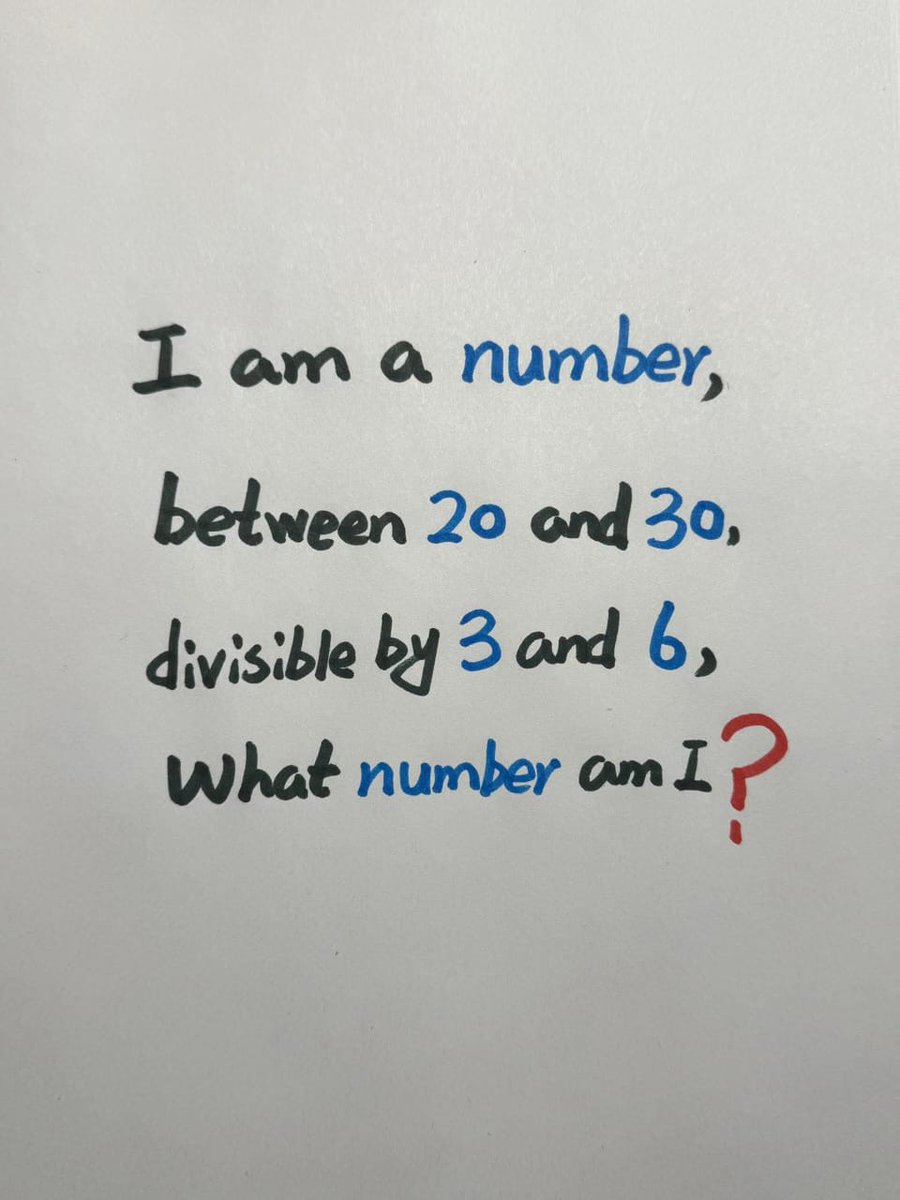 I am a number,
between 20 and 30,
divisible by 3 and 6,
What number am I?